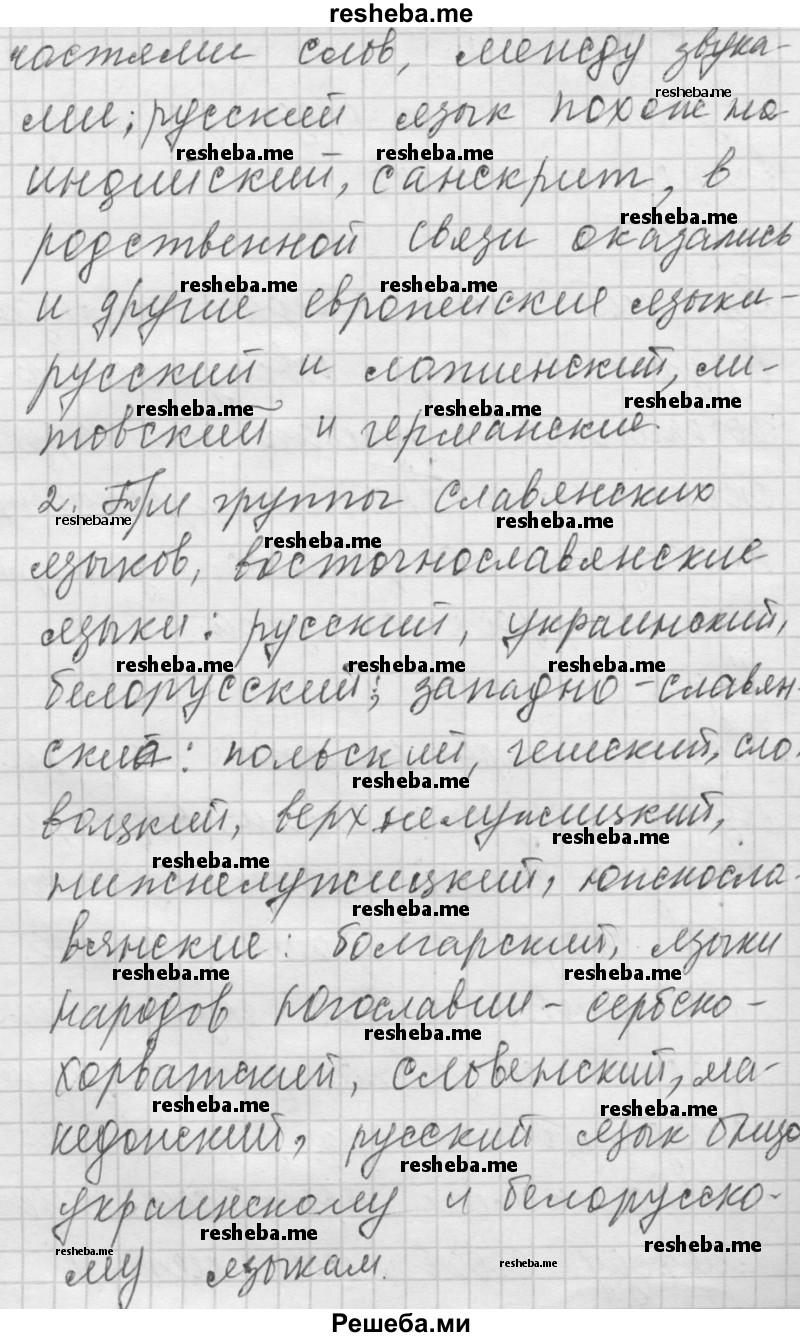 resheba.me
частями слов, между звука-
ми; русский язык похож на
индийский, санскрит, в
родственной связи оказались
и другие европейские языки-
русский и латинский, ли-
товский и германские.
2. Три группы славянских
языков, восточнославянские
языки: русский, украинский,
белорусский; западно-славян-
ский: польский, чешский, сло-
вацкий, верхнелужицкий,
нижнелужицкий, южносла-
вянские: болгарский, языки
народов Югославии - сербско-
хорватский, словенский, ма-
кедонский, русский язык
украинскому и белорусско-
му языкам.
Решеба.ми